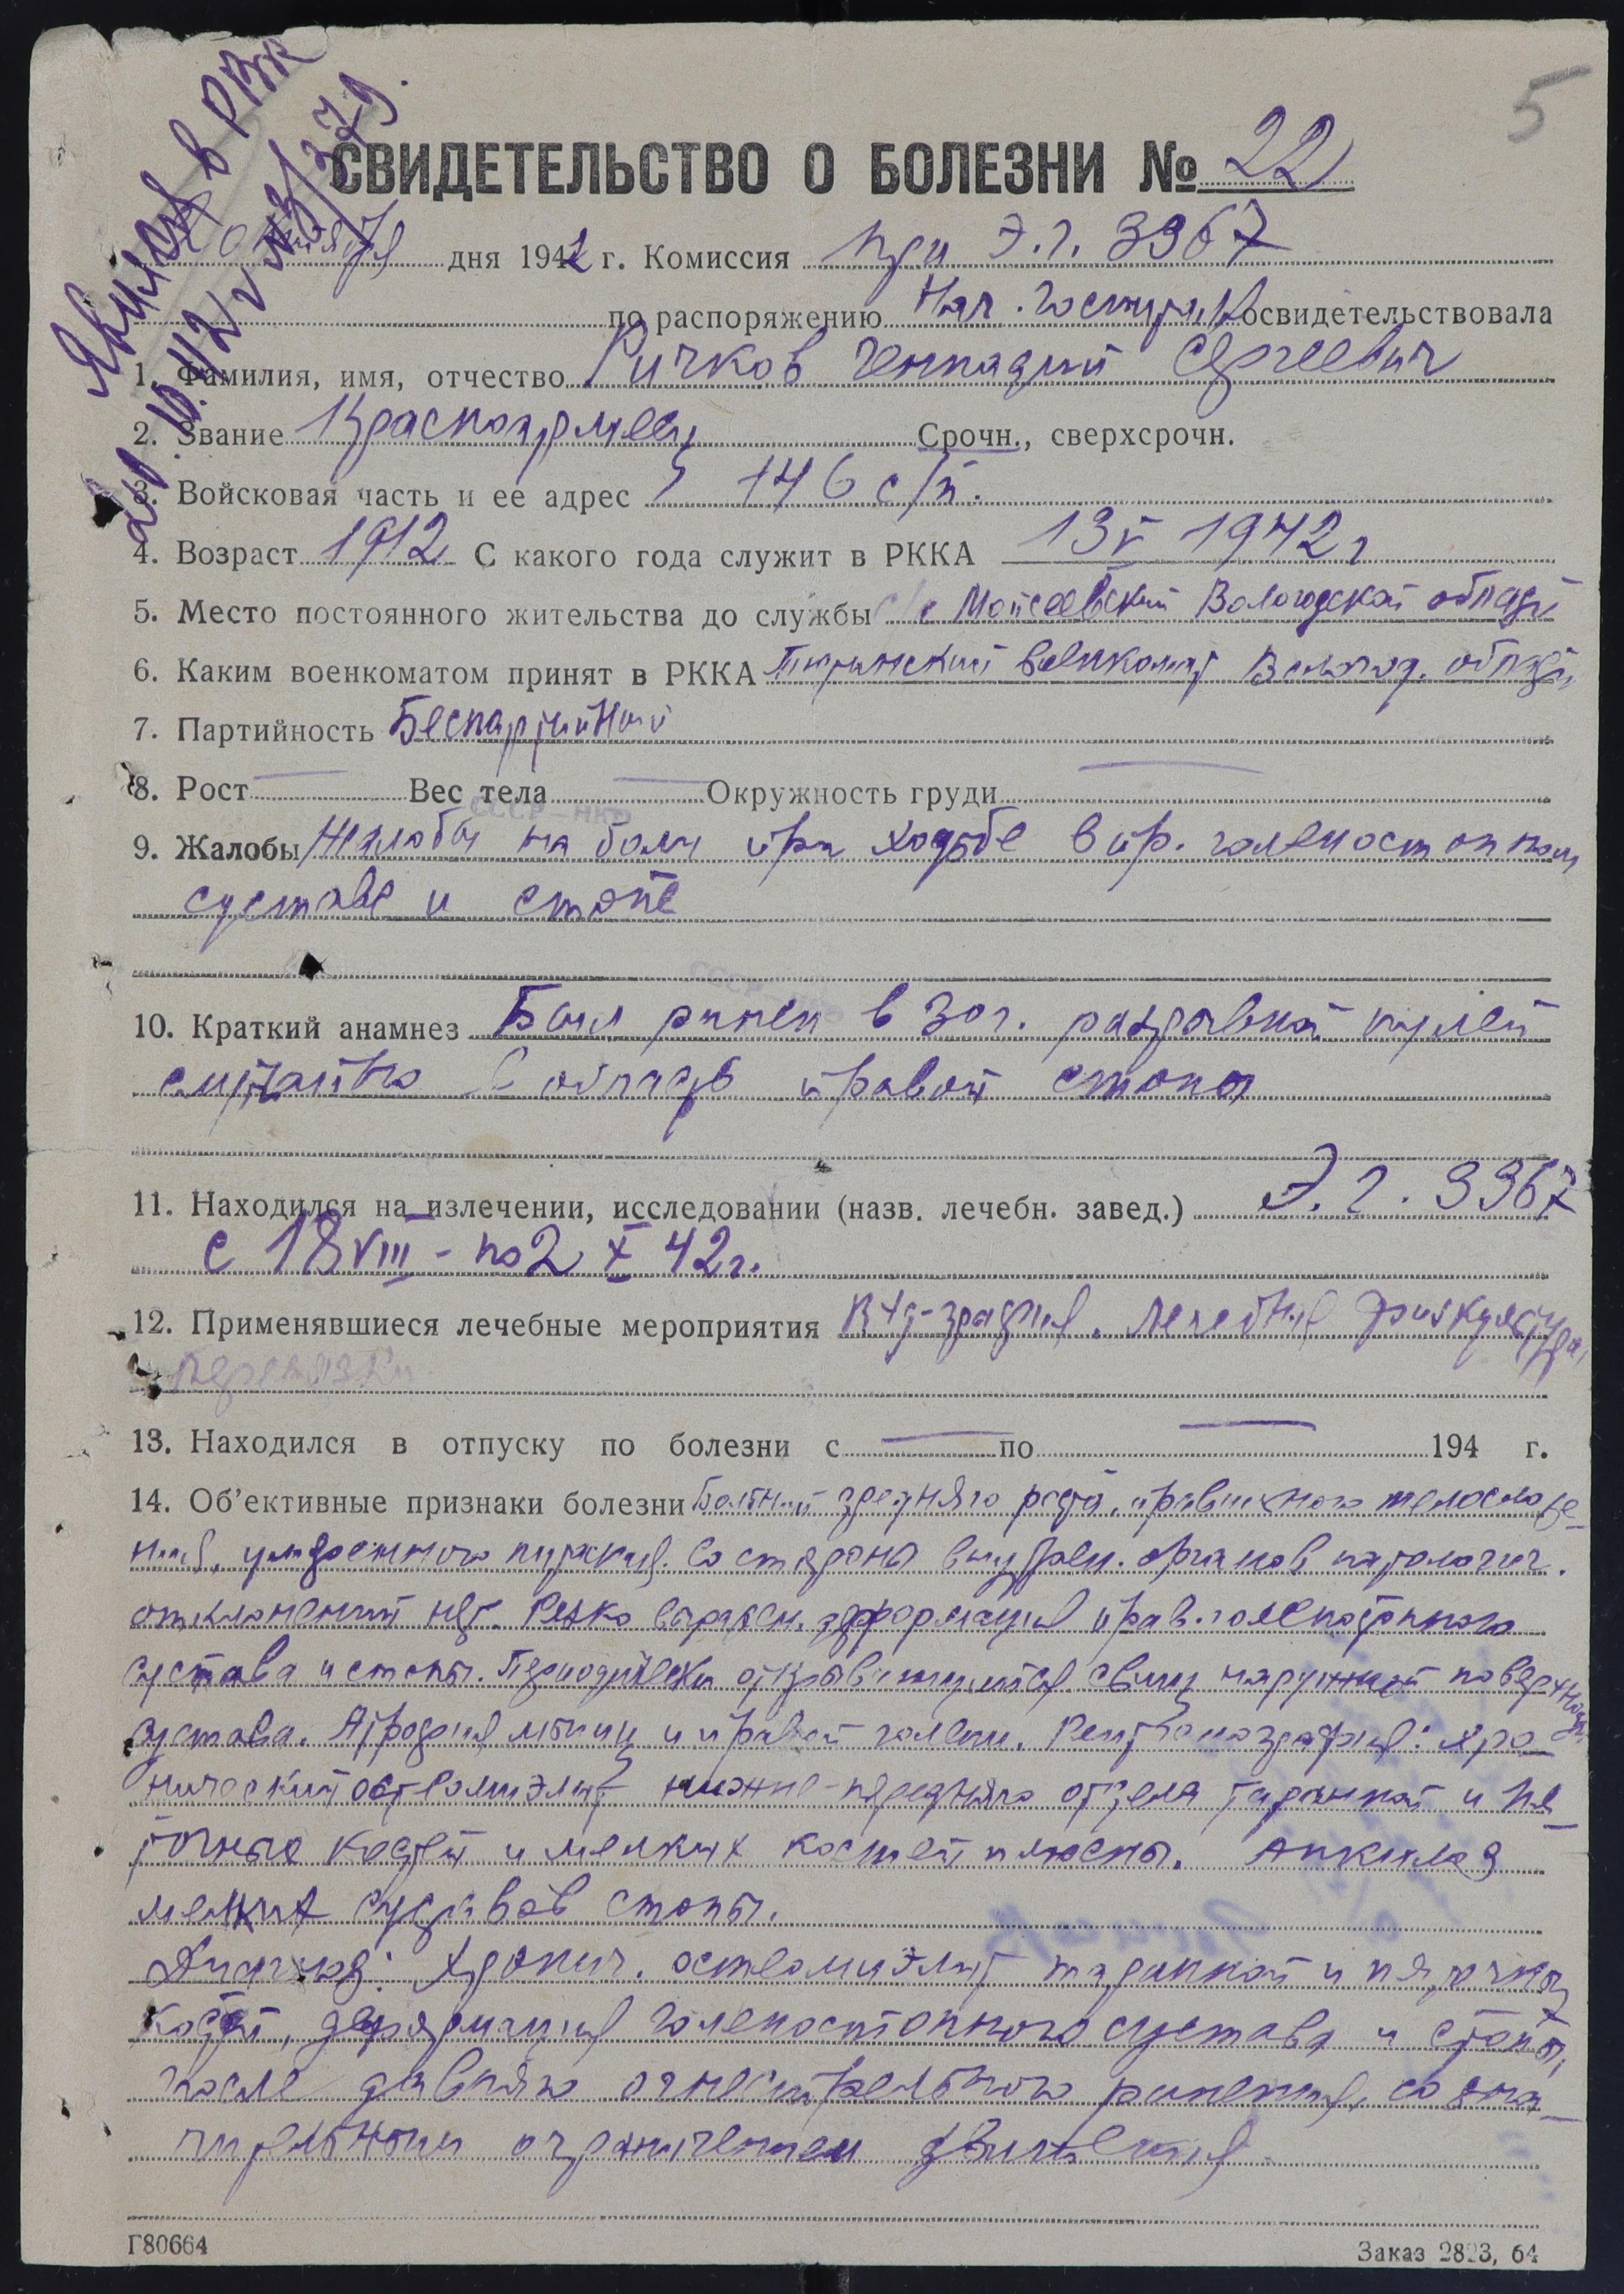 5
Явился в РВК
СВИДЕТЕЛЬСТВО О БОЛЕЗНИ № 22
дня 1942 г. Комиссия при Э.г. 3367
по распоряжению Нач. госпиталя освидетельствовала
1. Фамилия, имя, отчество Ричков Геннадий Сергеевич
2. Звание Красноармеец Срочн., сверхсрочн.
3. Войсковая часть и ее адрес 146 с/п.
4. Возраст 1912 С какого года служит в РККА 13 V 1942 г
5. Место постоянного жительства до службы с/с Мойсеевский Вологодской области
6. Каким военкоматом принят в РККА военкомат Вологод. област
7. Партийность Беспартийный
8. Рост — Вес тела — Окружность груди —
9. Жалобы Жалобы на боли при ходьбе в пр. голеностопном
суставе и стопе
10. Краткий анамнез Был ранен в 30 г. разрывной пулей
случайно в область правой стопы
11. Находился на излечении, исследовании (назв. лечебн. завед.) Э.г. 3367
с 18 VIII - по 2 X 42 г.
12. Применявшиеся лечебные мероприятия лечебная физкультура,
перевязки
13. Находился в отпуску по болезни с — по — 194 г.
14. Об'ективные признаки болезни Больной среднего роста, правильного телосложе-
ния, питания. Со стороны внутрен. органов патологич.
отклонений нет. Резко выражен. деформация прав. голеностопного
сустава и стопы. Периодически открывающийся свищ наружной поверхност.
сустава. Атрофия мышц правой голени. Рентгенография: Хро-
нический остеомиэлит нижне-переднего отдела таранной и пя-
точной костей и мелких костей плюсны. Анкилоз
мелких суставов стопы.
Диагноз: Хронич. остеомиэлит таранной и пяточной
костей, деформация голеностопного сустава и стопы,
после давнего огнестрельного ранения, со зна-
чительным ограничением движения
Г80664
Заказ 2823, 64